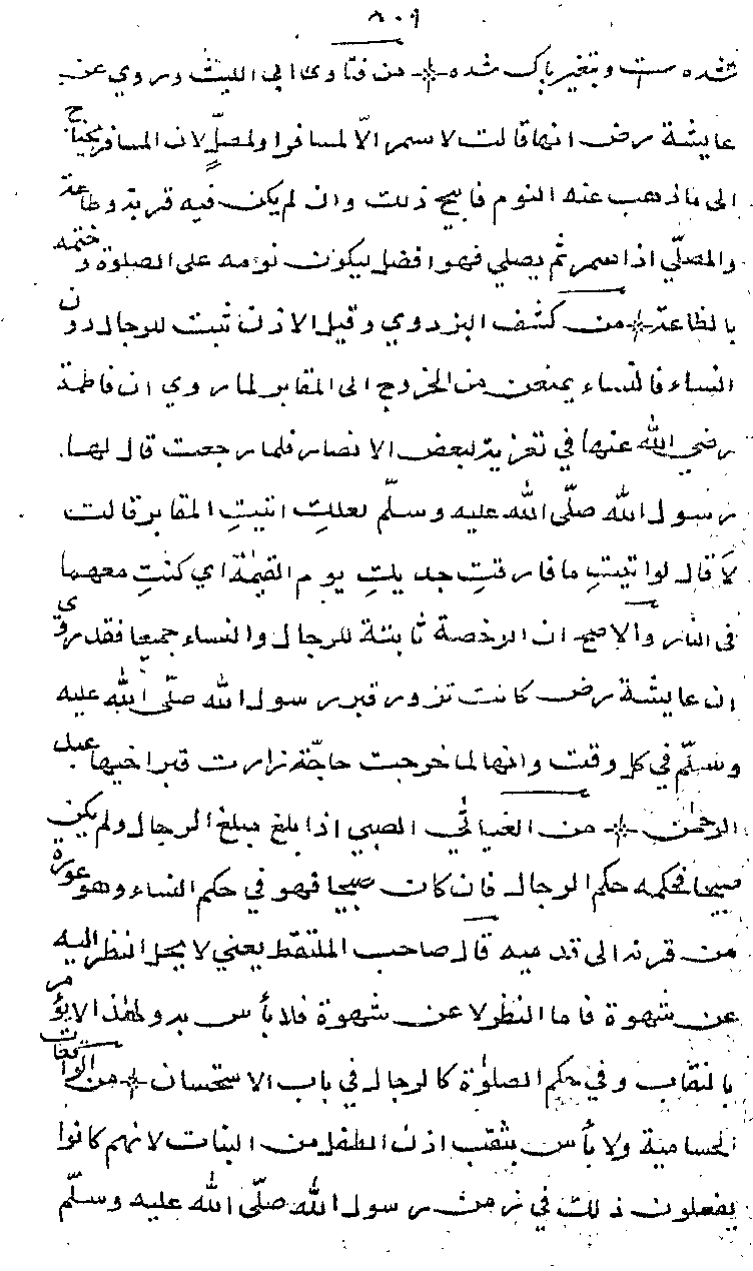 ٨٠٩
نشده ست وبتغير پاک شده من فتاوى ابى الليث وروي عن
عايشة رض انها قالت لا سمر الّا لمسافر اولمصلٍّ لان المسافر يحتاج
الى ما ذهب عنه النوم فابيح ذلك وان لم يكن فيه قربة وطاعة
والمصلّي اذا سمر ثم يصلي فهو افضل ليكون نومه على الصلوة وختمه
بالطاعة من كشف البزدوي وقيل الاذن ثبت للرجال دون
النساء فالنساء يمنعن من الخروج الى المقابر لما روي ان فاطمة
رضي الله عنها في تعزية لبعض الانصار فلما رجعت قال لها
رسول الله صلّى الله عليه وسلّم لعلكِ اتيتِ المقابر قالت
لا قال لو اتيتِ ما فارقتِ جديكِ يوم القيٰمة اي كنتِ معهما
فى النار والاصح ان الرخصة ثابتة للرجال والنساء جميعا فقد روي
ان عايشة رض كانت تزور قبر رسول الله صلّى الله عليه
وسلّم في كل وقت وانها لما خرجت حاجّة زارت قبر اخيها عبد
الرحمٰن من الغياثي الصبي اذا بلغ مبلغ الرجال ولم يكن
صبيحا فحكمه حكم الرجال فان كان صبيحا فهو في حكم النساء وهو عورة
من قرنه الى قدميه قال صاحب الملتقط يعني لا يحل النظر اليه
عن شهوة فاما النظر لا عن شهوة فلا بأس به ولهٰذا لا يؤمر
بالنقاب وفي حكم الصلوٰة كالرجال في باب الاستحسان من الواقعات
الحسامية ولا بأس بثقب اذن الطفل من البنات لانهم كانوا
يفعلون ذلك في زمن رسول الله صلّى الله عليه وسلّم